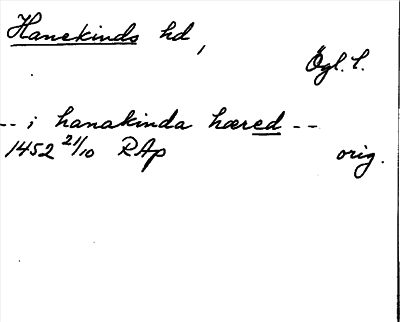 Hanekinds hd,
Ögl. l.
-- i hanakinda hæred --
1452 21/10 RAp orig.